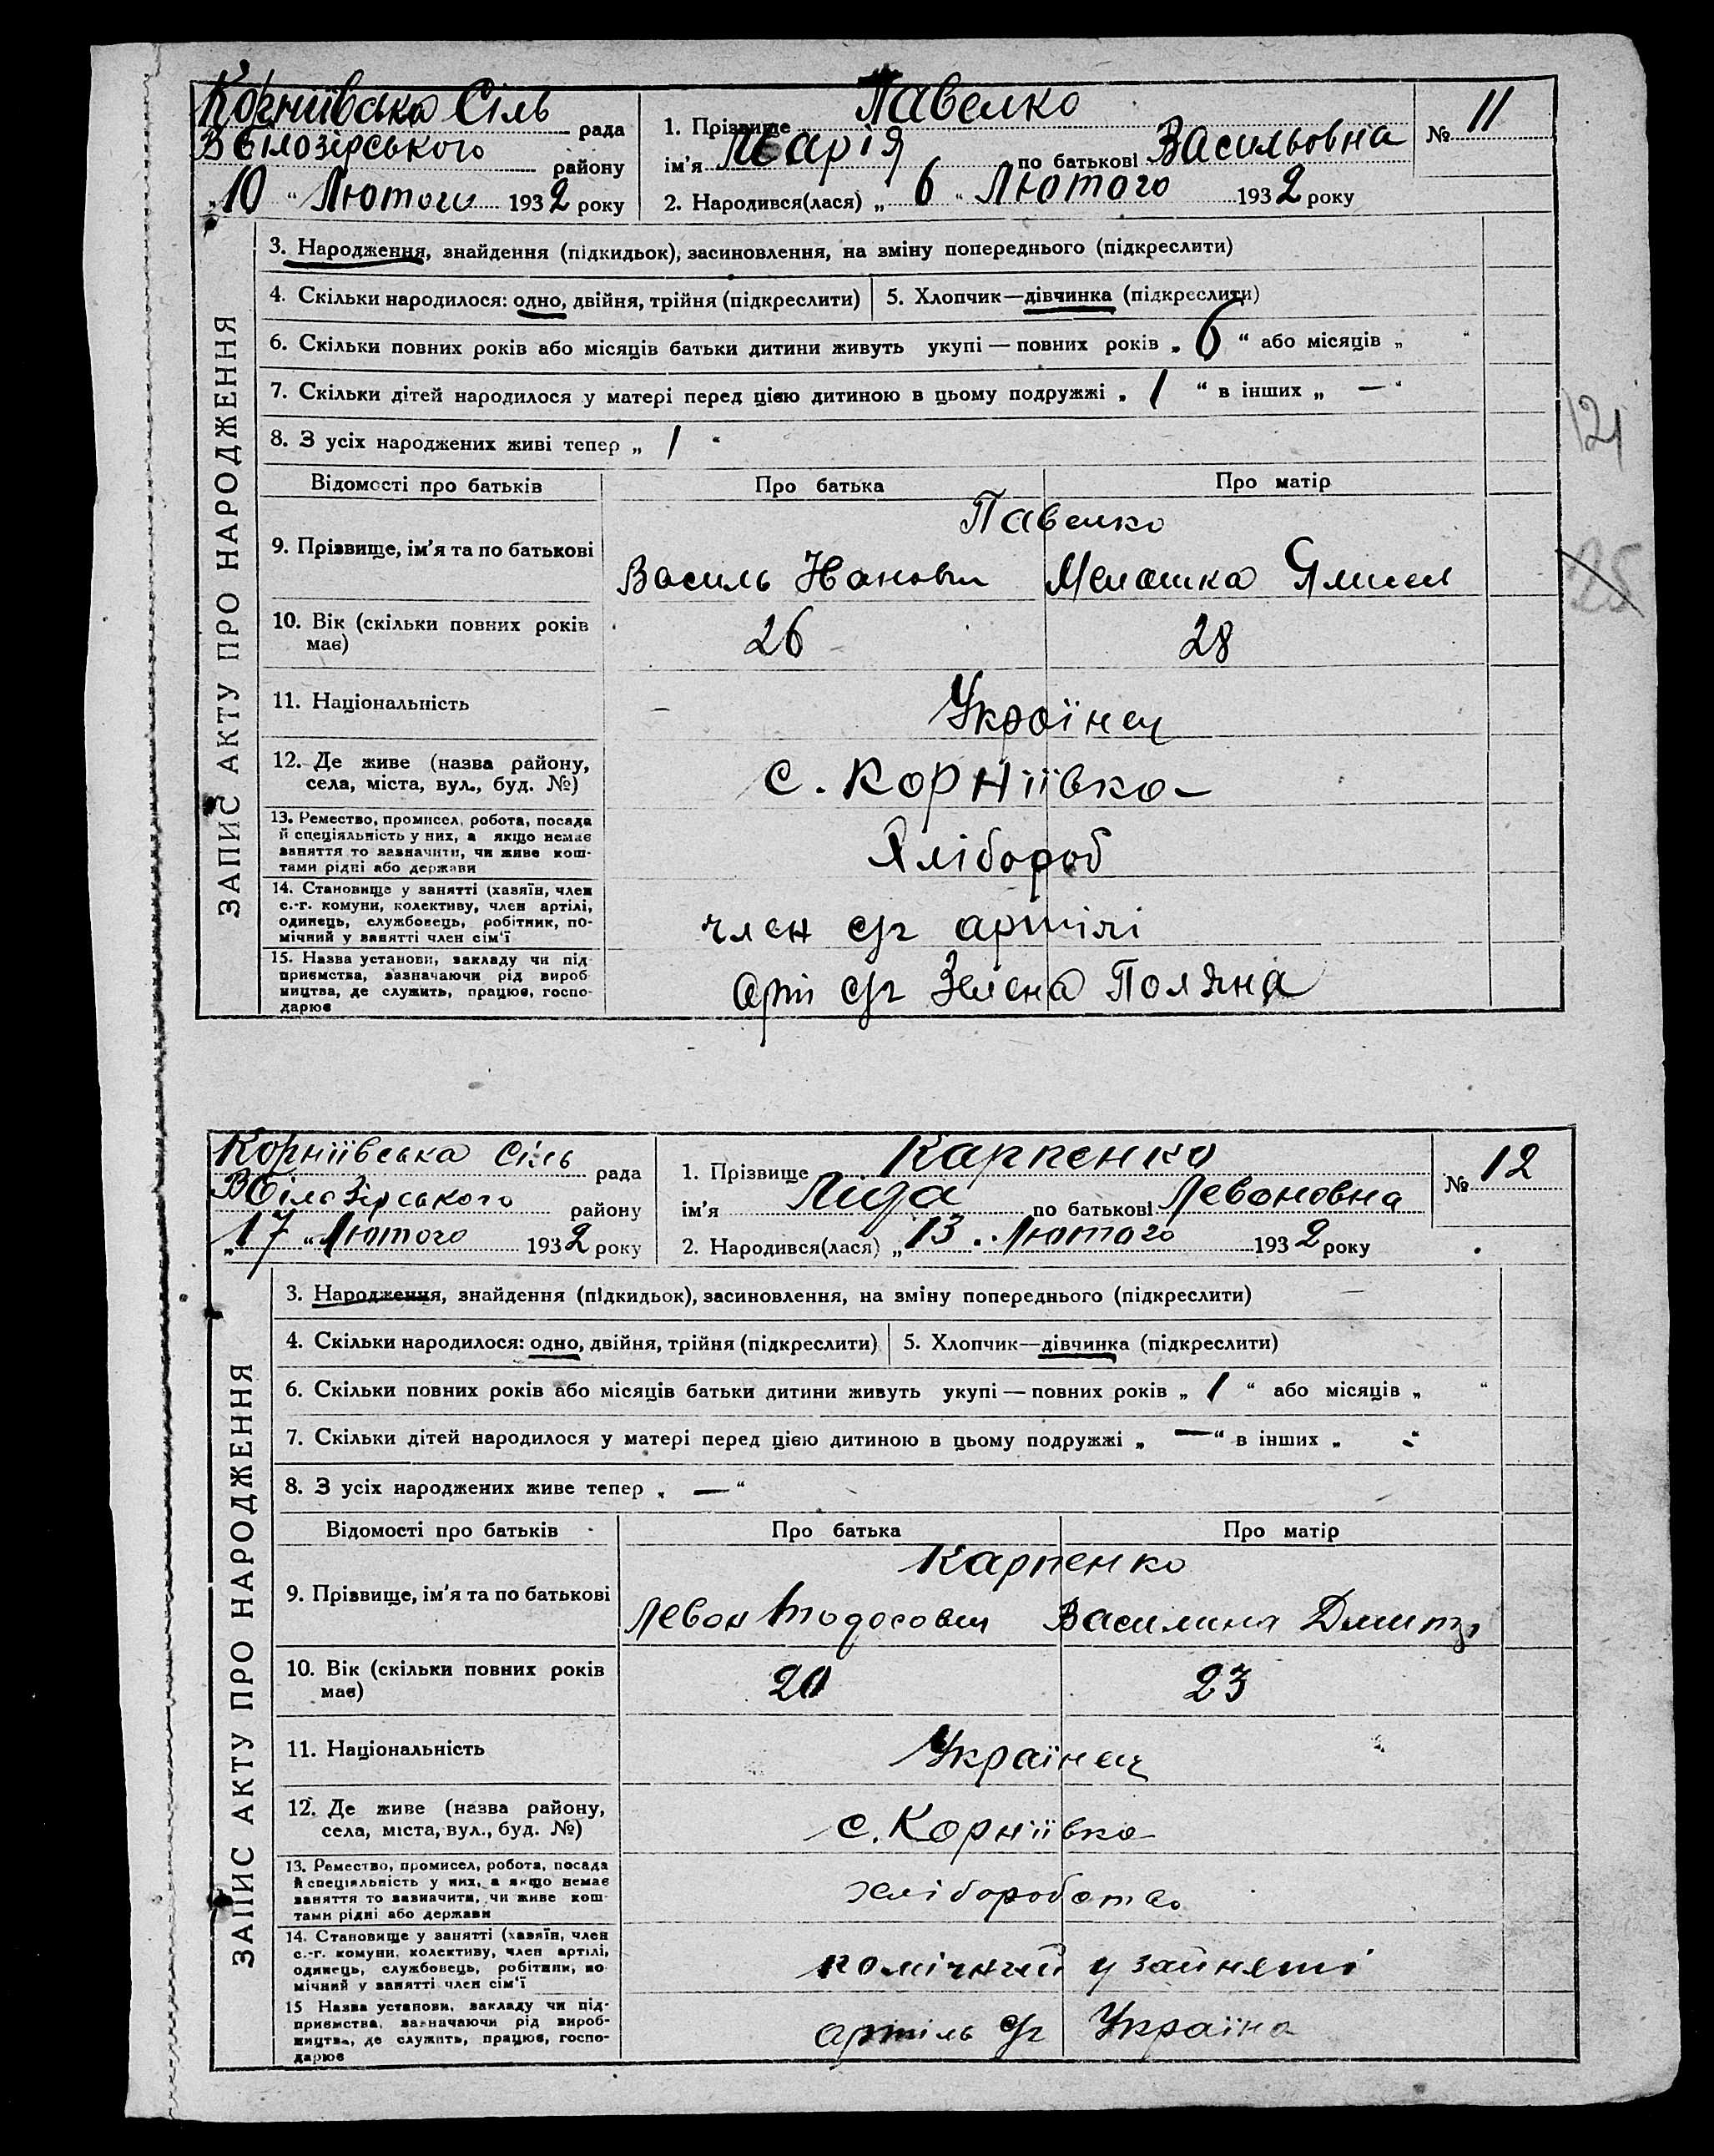 Корніївська Сіль рада
В Білозірського району
„10“ Лютого 1932 року
1. Прізвище Павелко
ім’я Марія по батькові Васильовна
2. Народився(лася) „6“ Лютого 1932 року
№ 11
ЗАПИС АКТУ ПРО НАРОДЖЕННЯ
3. Народження, знайдення (підкидьок), засиновлення, на зміну попереднього (підкреслити)
4. Скільки народилося: одно, двійня, трійня (підкреслити) 5. Хлопчик—дівчинка (підкреслити)
6. Скільки повних років або місяців батьки дитини живуть укупі — повних років „6“ або місяців „ “
7. Скільки дітей народилося у матері перед цією дитиною в цьому подружжі „1“ в інших „—“
8. З усіх народжених живі тепер „1“
121
25
Відомості про батьків Про батька Про матір
Павелко
9. Прізвище, ім’я та по батькові Василь Іванович Мелашка
10. Вік (скільки повних років має) 26 28
11. Національність Українец
12. Де живе (назва району, села, міста, вул., буд. №) с. Корніївка
13. Ремество, промисел, робота, посада
й спеціяльність у них, а якщо немає
заняття то зазначити, чи живе кош-
тами рідні або держави
Хлібороб
14. Становище у занятті (хазяїн, член
с.-г. комуни, колективу, член артілі,
одинець, службовець, робітник, по-
мічний у занятті член сім’ї
член с/г артілі
15. Назва установи, закладу чи під
приємства, зазначаючи рід вироб
ництва, де служить, працює, госпо-
дарює
арт с/г Зелена Поляна
Корніївська Сіль рада
В Білозірського району
„17“ Лютого 1932 року
1. Прізвище Карпенко
ім’я Ліда по батькові Левоновна
2. Народився(лася) „13 Лютого 1932 року
№ 12
ЗАПИС АКТУ ПРО НАРОДЖЕННЯ
3. Народження, знайдення (підкидьок), засиновлення, на зміну попереднього (підкреслити)
4. Скільки народилося: одно, двійня, трійня (підкреслити) 5. Хлопчик—дівчинка (підкреслити)
6. Скільки повних років або місяців батьки дитини живуть укупі — повних років „1“ або місяців „ “
7. Скільки дітей народилося у матері перед цією дитиною в цьому подружжі „—“ в інших „-“
8. З усіх народжених живе тепер „—“
Відомості про батьків Про батька Про матір
Карпенко
9. Прізвище, ім’я та по батькові Левон Тодосович Василина Дмитр
10. Вік (скільки повних років має) 20 23
11. Національність Українец
12. Де живе (назва району, села, міста, вул., буд. №) с. Корніївка
13. Ремество, промисел, робота, посада
й спеціяльність у них, а якщо немає
заняття то зазначити, чи живе кош-
тами рідні або держави
хліборобство
14. Становище у занятті (хазяїн, член
с.-г. комуни, колективу, член артілі,
одинець, службовець, робітник, по
мічний у занятті член сім’ї
помічний у зайняті
15 Назва установи, закладу чи під-
приємства, зазначаючи рід вироб-
ництва, де служить, працює, госпо-
дарює
артіль с/г Україна